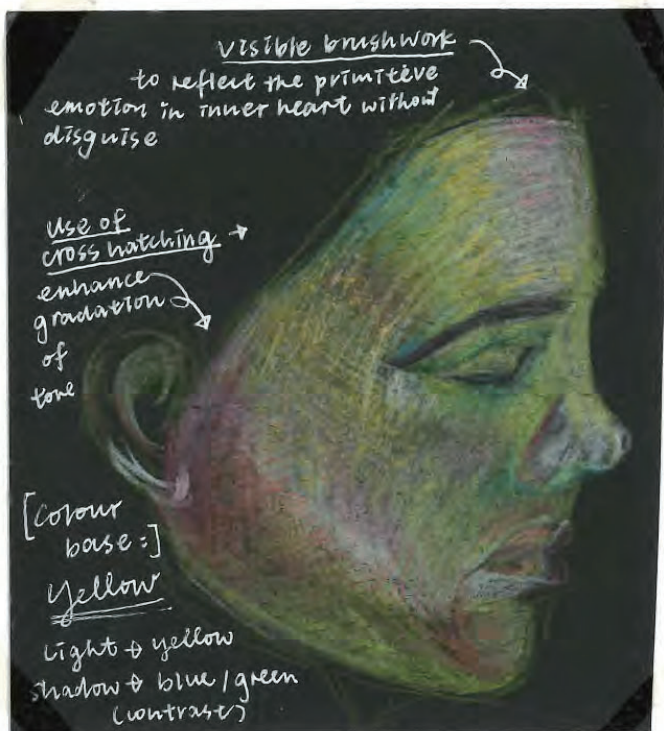 visible brushwork
to reflect the primitive
emotion in inner heart without
disguise
use of
cross hatching
enhance
gradation
of
tone
[colour
base:]
yellow
light → yellow
shadow → blue / green
(contrast)